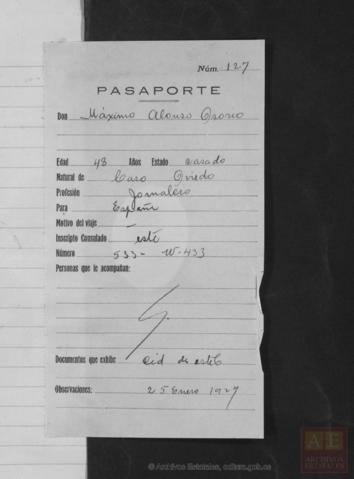 Núm. 127
PASAPORTE
Don Máximo Alonso Osorio
Edad 48 Años Estado casado
Natural de Caso Oviedo
Profesión Jornalero
Para España
Motivo del viaje —
Inscripto Consulado este
Número 533- W-433
Personas que le acompañan:
Documentos que exhibe Cid de este C
Observaciones: 25 Enero 1927
AE
ARCHIVOS
ESTATALES
© Archivos Estatales, cultura.gob.es